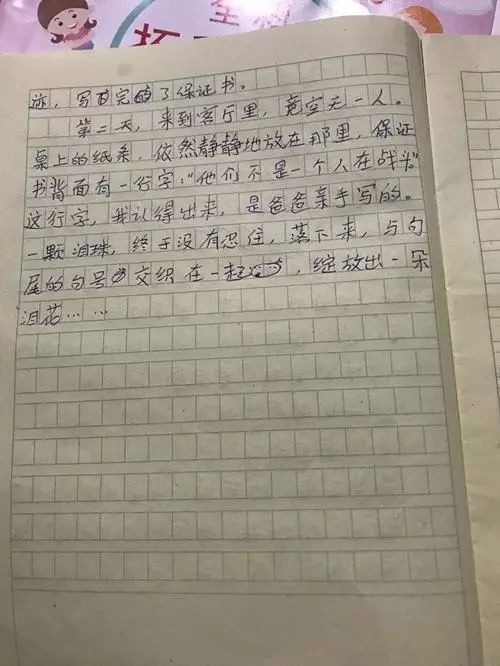 全
迹，写完了保证书。
第二天，来到客厅里，竟空无一人。
桌上的纸条，依然静静地放在那里，保证
书背面有一行字：“他们不是一个人在战斗”
这行字，我认得出来，是爸爸亲手写的。
一颗泪珠，终于没有忍住，落下来，与句
尾的句号交织在一起，绽放出一朵
泪花……